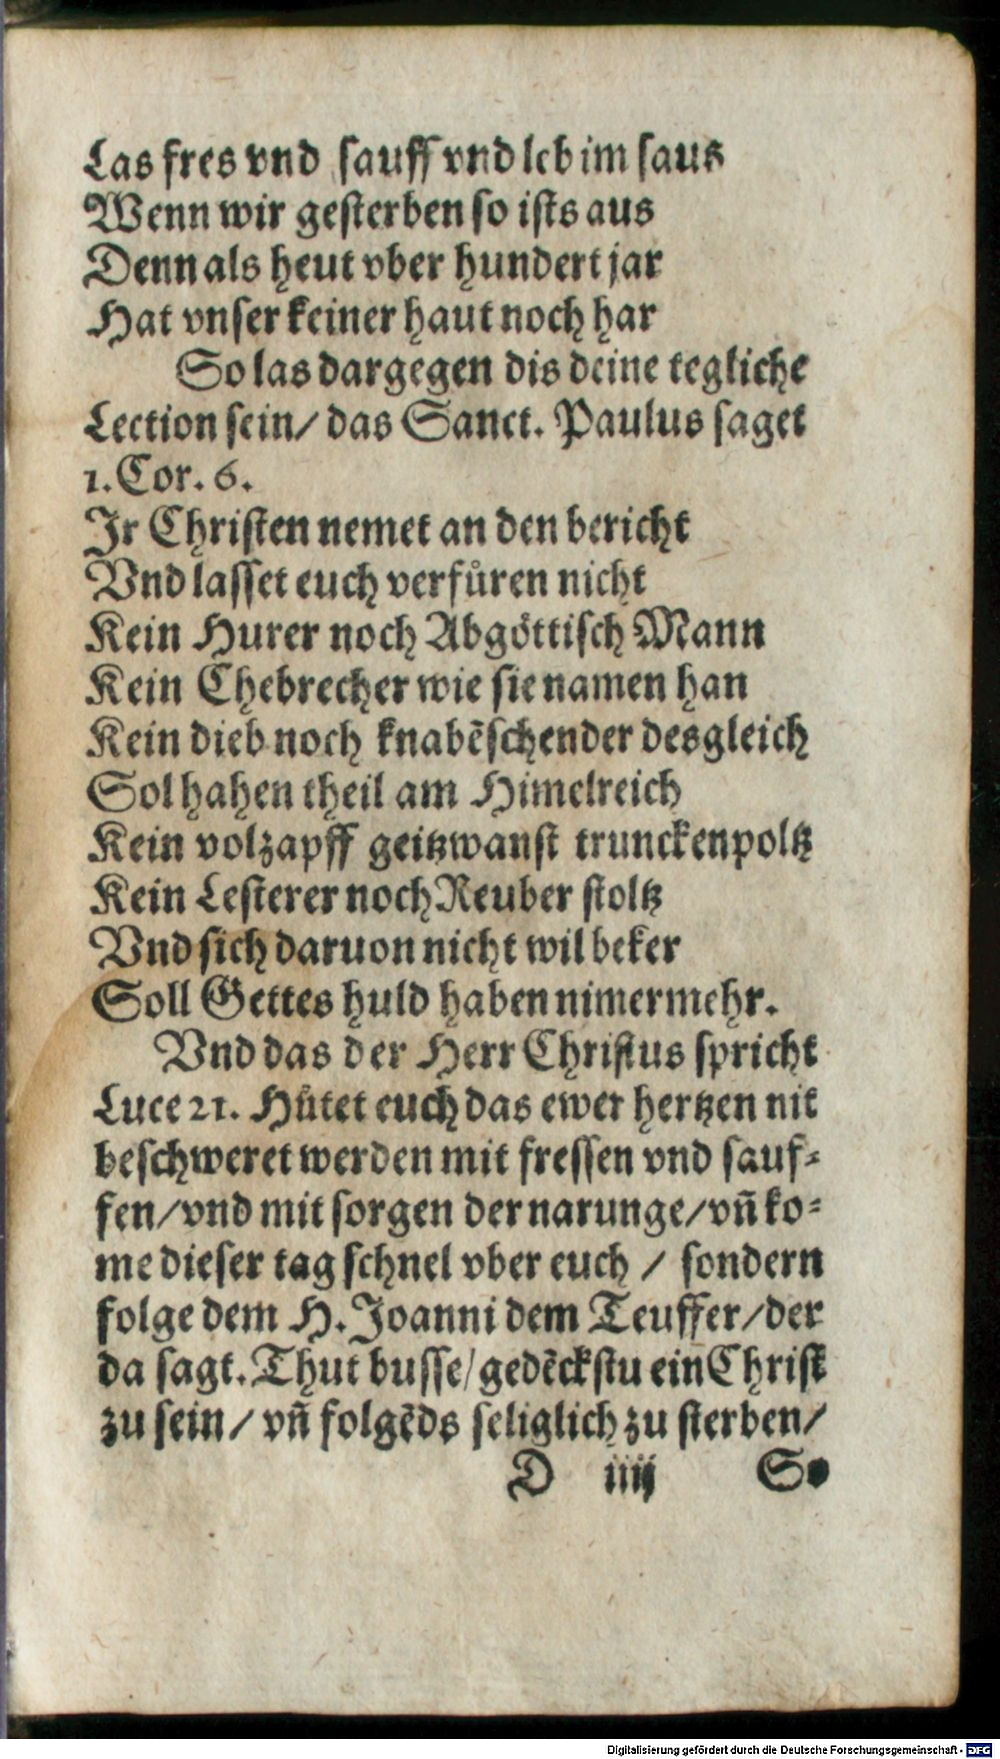 Las fres vnd sauff vnd leb im saus
Wenn wir gesterben so ists aus
Denn als heut vber hundert jar
Hat vnser keiner haut noch har
So las dargegen dis deine tegliche
Lection sein/ das Sanct. Paulus saget
1. Cor. 6.
Jr Christen nemet an den bericht
Vnd lasset euch verfůren nicht
Kein Hurer noch Abgöttisch Mann
Kein Ehebrecher wie sie namen han
Kein dieb noch knabēschender desgleich
Sol hahen theil am Himelreich
Kein volzapff geitzwanst trunckenpoltz
Kein Lesterer noch Reuber stoltz
Vnd sich daruon nicht wil beker
Soll Gettes huld haben nimermehr.
Vnd das der Herr Christus spricht
Luce 21. Hůtet euch das ewer hertzen nit
beschweret werden mit fressen vnd sauf⸗
fen/vnd mit sorgen der narunge/vñ ko⸗
me dieser tag schnel vber euch / sondern
folge dem H. Joanni dem Teuffer/der
da sagt. Thut busse/gedēckstu ein Christ
zu sein/ vñ folgēds seliglich zu sterben/
D iiij So
Digitalisierung gefördert durch die Deutsche Forschungsgemeinschaft - DFG